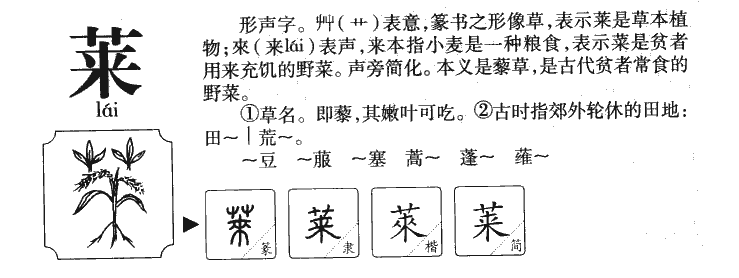 莱
lái
形声字。艸(艹)表意,篆书之形像草,表示莱是草本植
物;來(来lái)表声,来本指小麦是一种粮食,表示莱是贫者
用来充饥的野菜。声旁简化。本义是藜草,是古代贫者常食的
野菜。
①草名。即藜,其嫩叶可吃。②古时指郊外轮休的田地:
田～｜荒～。
～豆 ～菔 ～塞 蒿～ 蓬～ 蓷～
萊 篆
莱 隶
萊 楷
莱 简